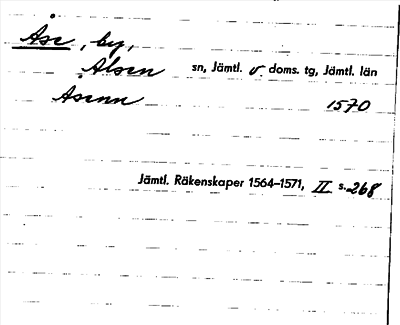 Åse, by,
Alsen sn, Jämtl. v. doms. tg, Jämtl. län
Asenn 1570
Jämtl. Räkenskaper 1564–1571, II s. 268